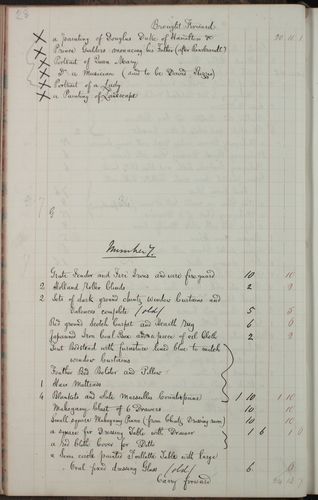 Brought Forward 20 11 1
X a painting of Douglas Duke of Hamilton &
X Prince Gueldres menacing his Father (after Rembrandt)
X Portrait of Queen Mary
X Do a Musician (said to be David Rizzio)
X Portrait of a Lady
X a Painting of Landscape
Number 7.
Grate Fender and Fire Irons and wire fire guard 10 10
2 Holland Roller Blinds 2 2
2 Sets of dark ground chintz window Curtains and
Valances complete (old) 5 5
Red ground Scotch Carpet and Hearth Rug 6 6
Japanned Iron Coal Box and a piece of oil Cloth 2 2
Tent Bedstead with furniture lined blue to match
window Curtains
Feather Bed Bolster and Pillow
1 Hair Mattress
4 Blankets and white Marseilles Counterpane 1 10 1 10
Mahogany Chest of 6 Drawers 10 10
Small square Mahogany Piano (from Chintz Dressing room) 10 10
a square fir Dressing Table with Drawer 1 6 1 6
a Red Cloth Cover for Ditto
a Semi circle painted Toilette Table with large
Oval fixed dressing Glass (old) 6 6
Carry forward